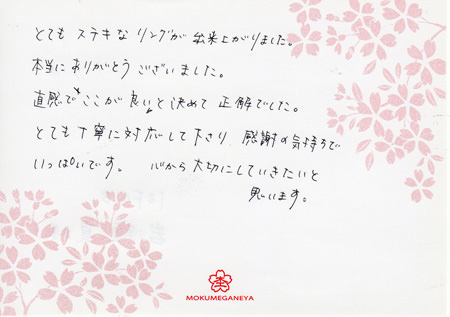 とても ステキな リングが 出来上がりました。
本当に ありがとう ございました。
直感で“ここが良い”と決めて 正解でした。
とても 丁寧に対応して下さり、感謝の気持ちで
いっぱいです。 心から大切にしていきたいと
思います。
MOKUMEGANEYA